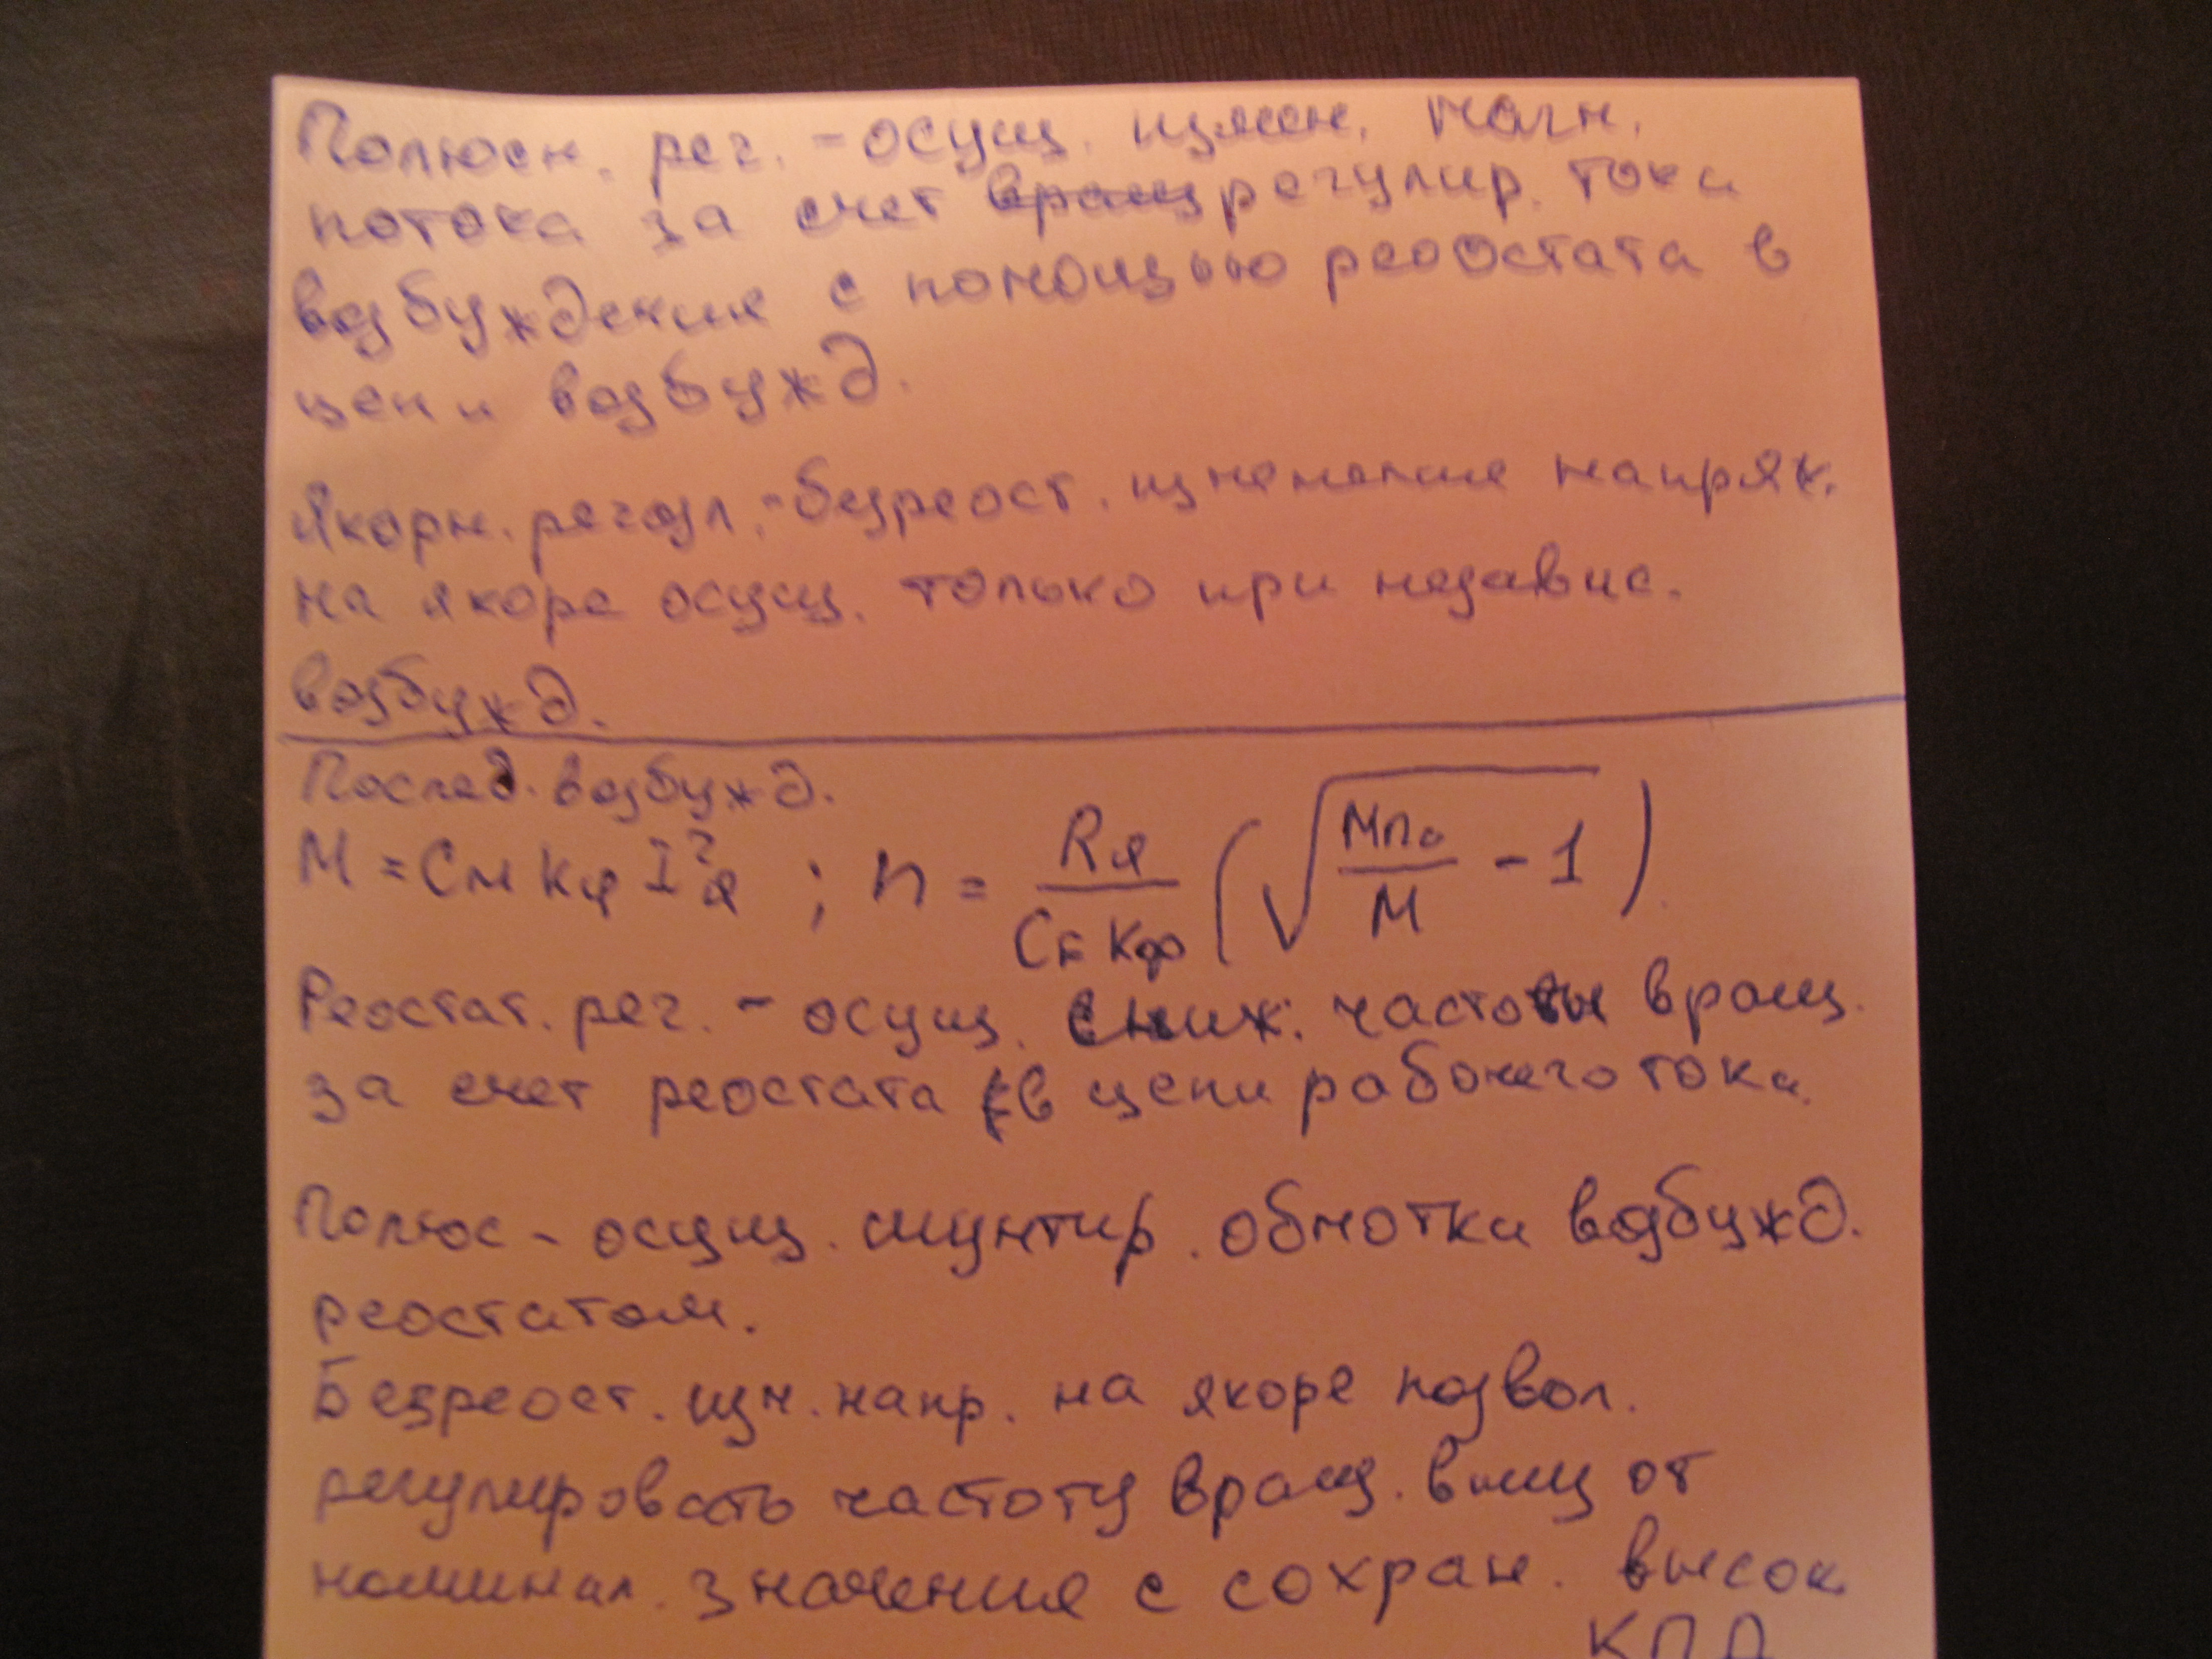 Полюсн. рег. - осущ. измен. магн.
потока за счет вращ регулир. тока
возбуждения с помощью реостата в
цепи возбужд.
Якорн. регул. - безреост. изменение напряж.
на якоре осущ. только при независ.
возбужд.
Послед. возбужд.
M = Cм Kф I²я ; n = Rя / (CE Kф) (√(Mпо / M - 1))
Реостат. рег. - осущ. сниж. частоты вращ.
за счет реостата в цепи рабочего тока.
Полюс - осущ. шунтир. обмотки возбужд.
реостатом.
Безреост. изм. напр. на якоре позвол.
регулировать частоту вращ. вниз от
номинал. значения с сохран. высок
КПД